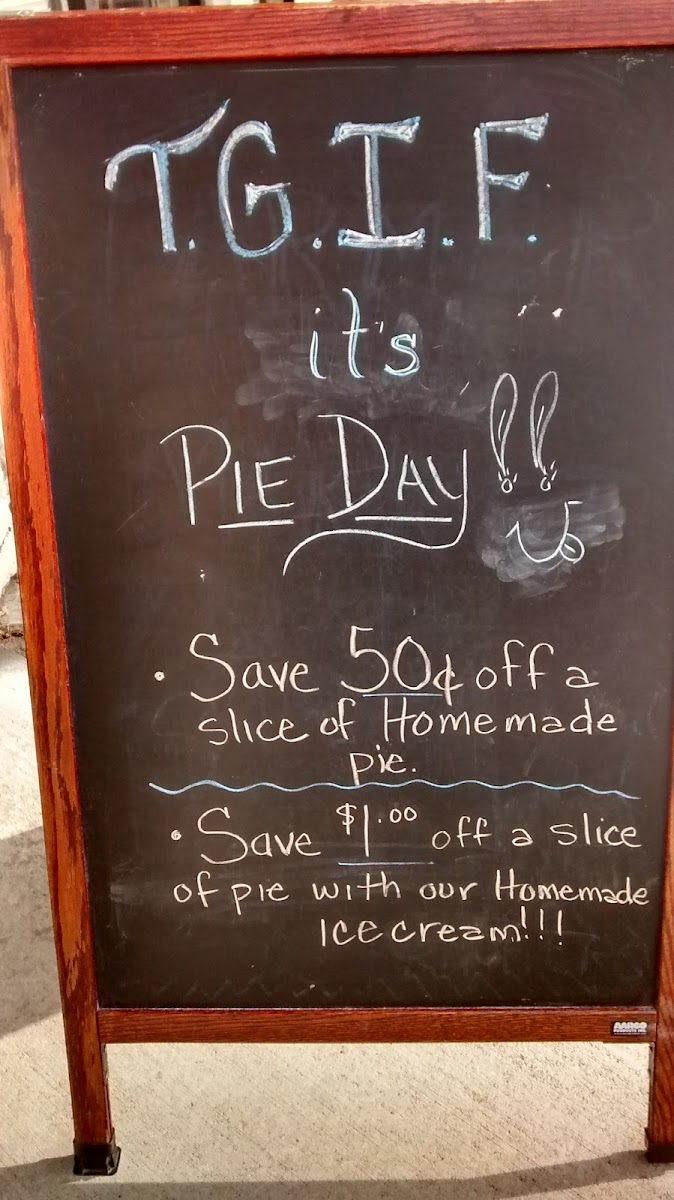 T.G.I.F.
it's
PIE DAY!!
• Save 50¢ off a
slice of Homemade
pie.
• Save $1.00 off a slice
of pie with our Homemade
Ice cream!!!
AARCO